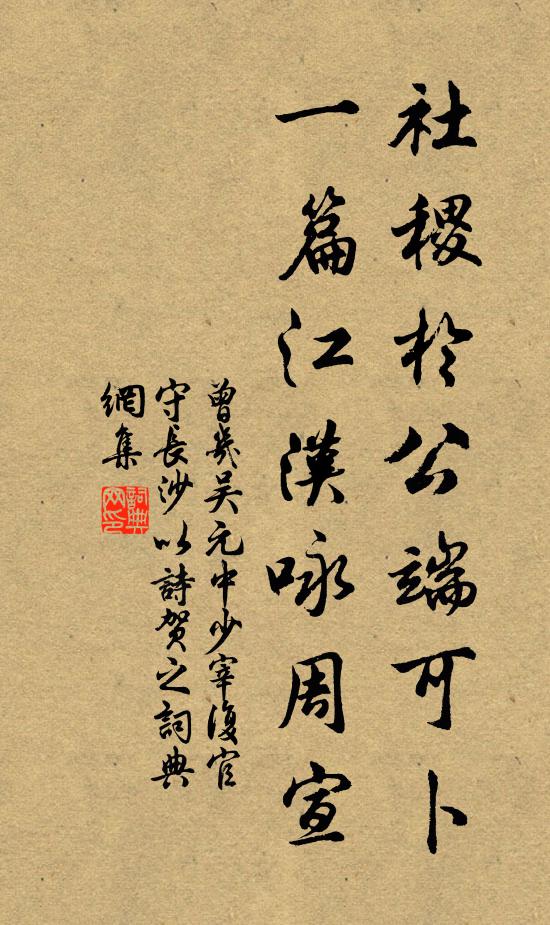 社稷於公端可卜
一篇江漢咏周宣
曾幾吳元中少宰復官
守長沙以詩賀之詞典
網集
詞典
网印